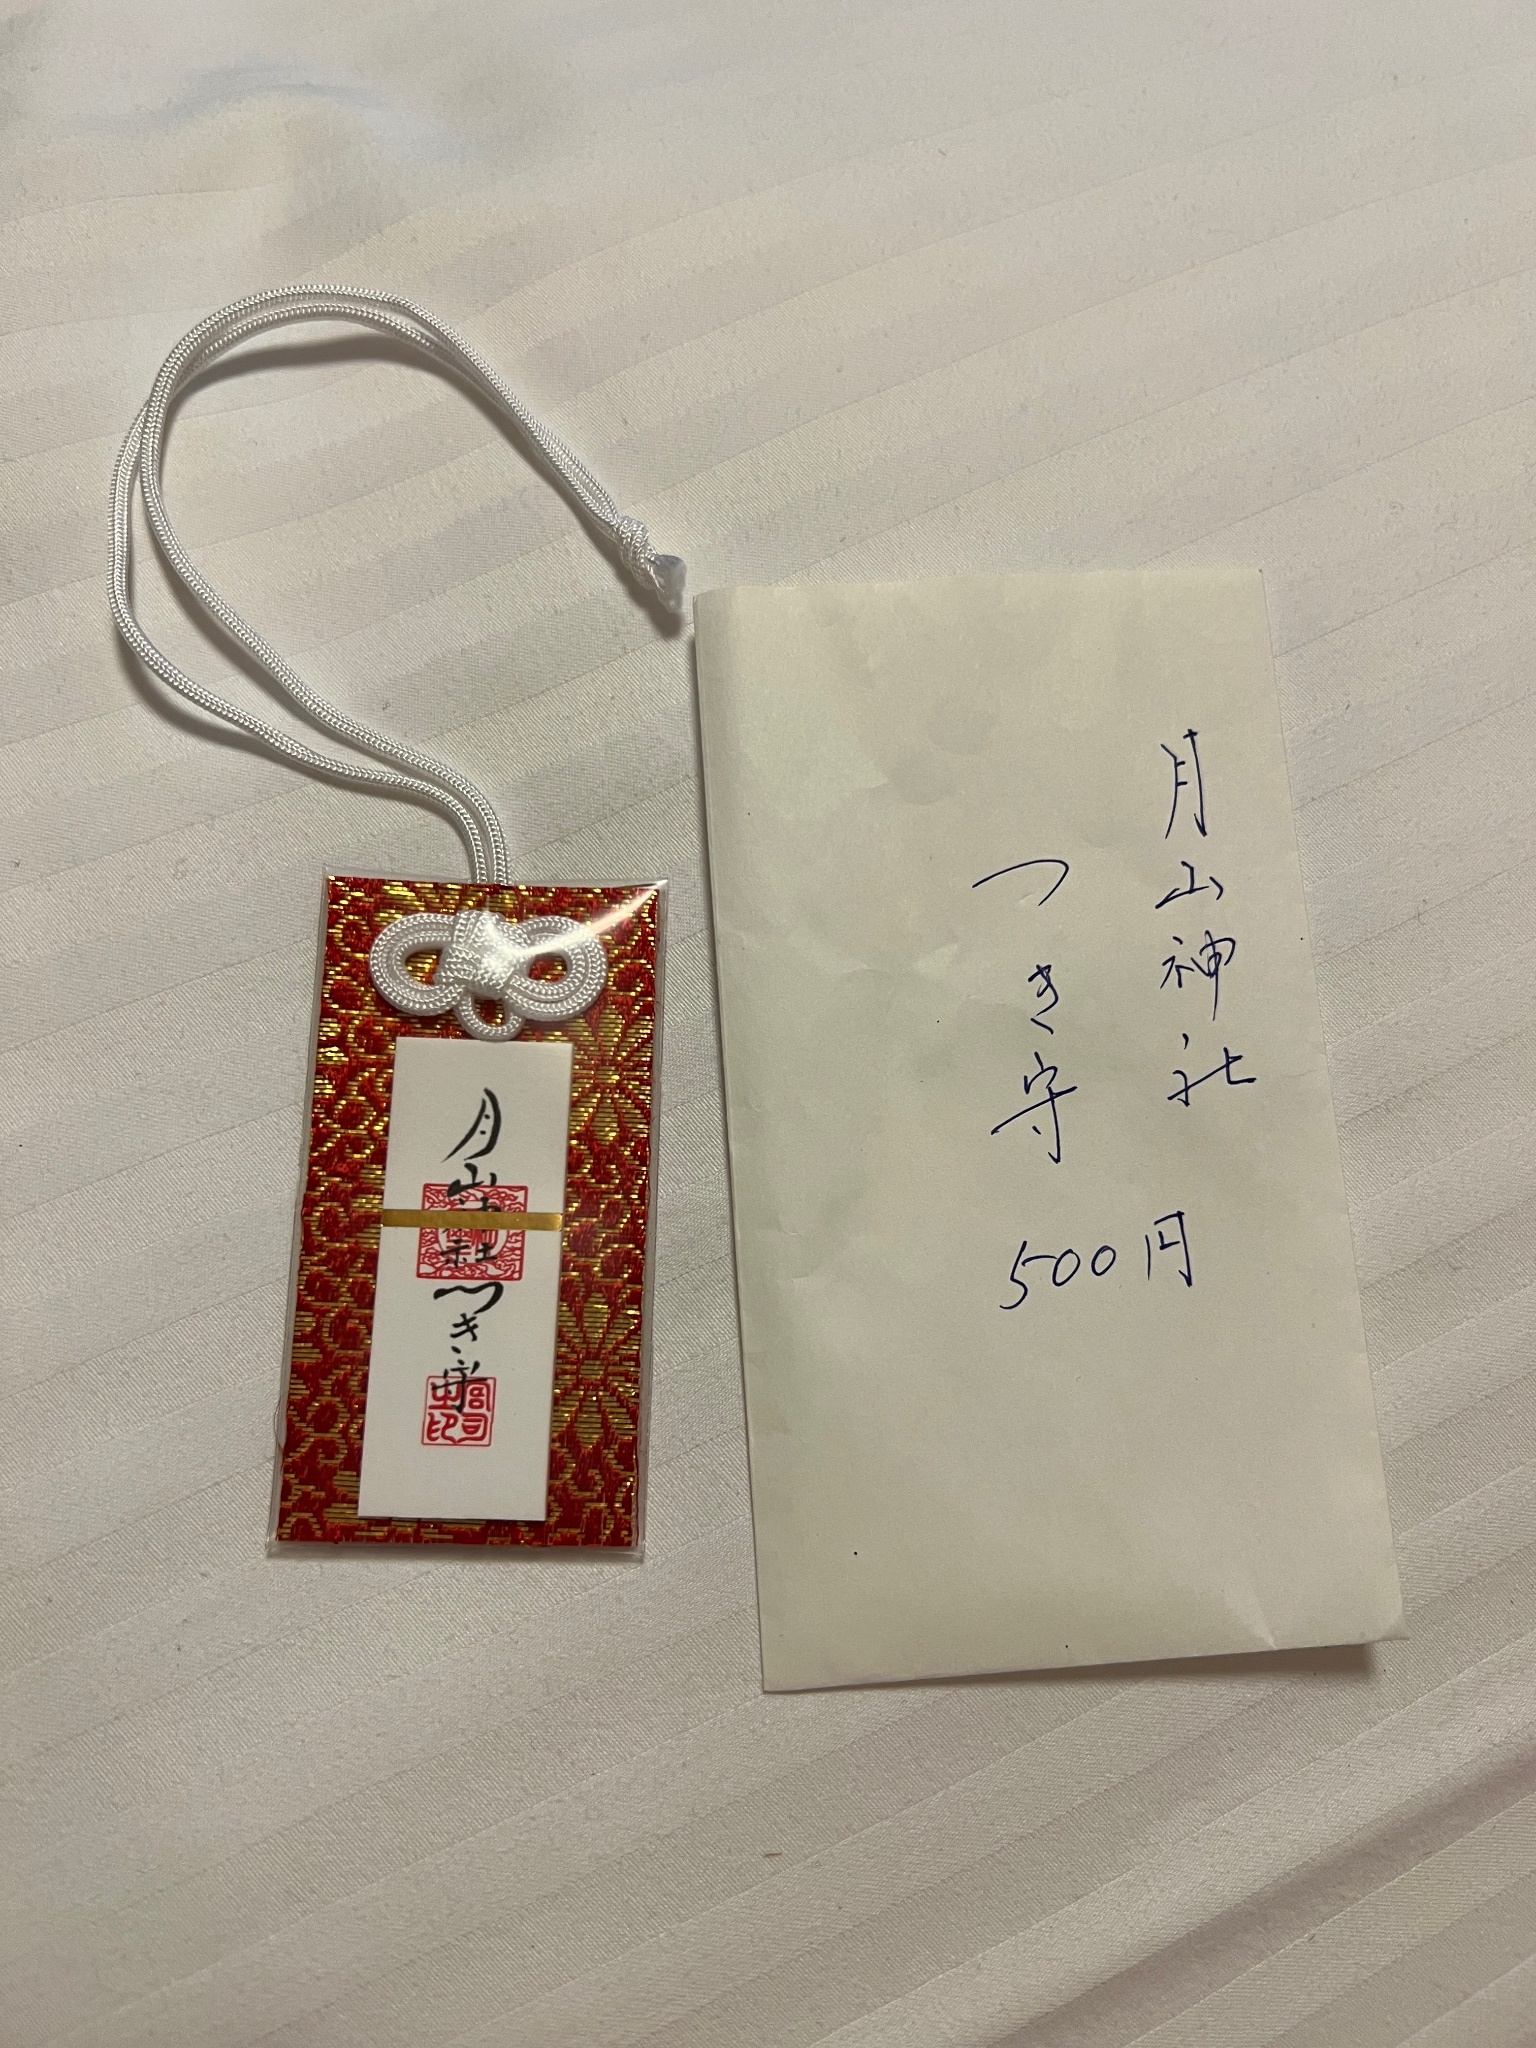 月山神社つき守
月山神社
つき守
500円